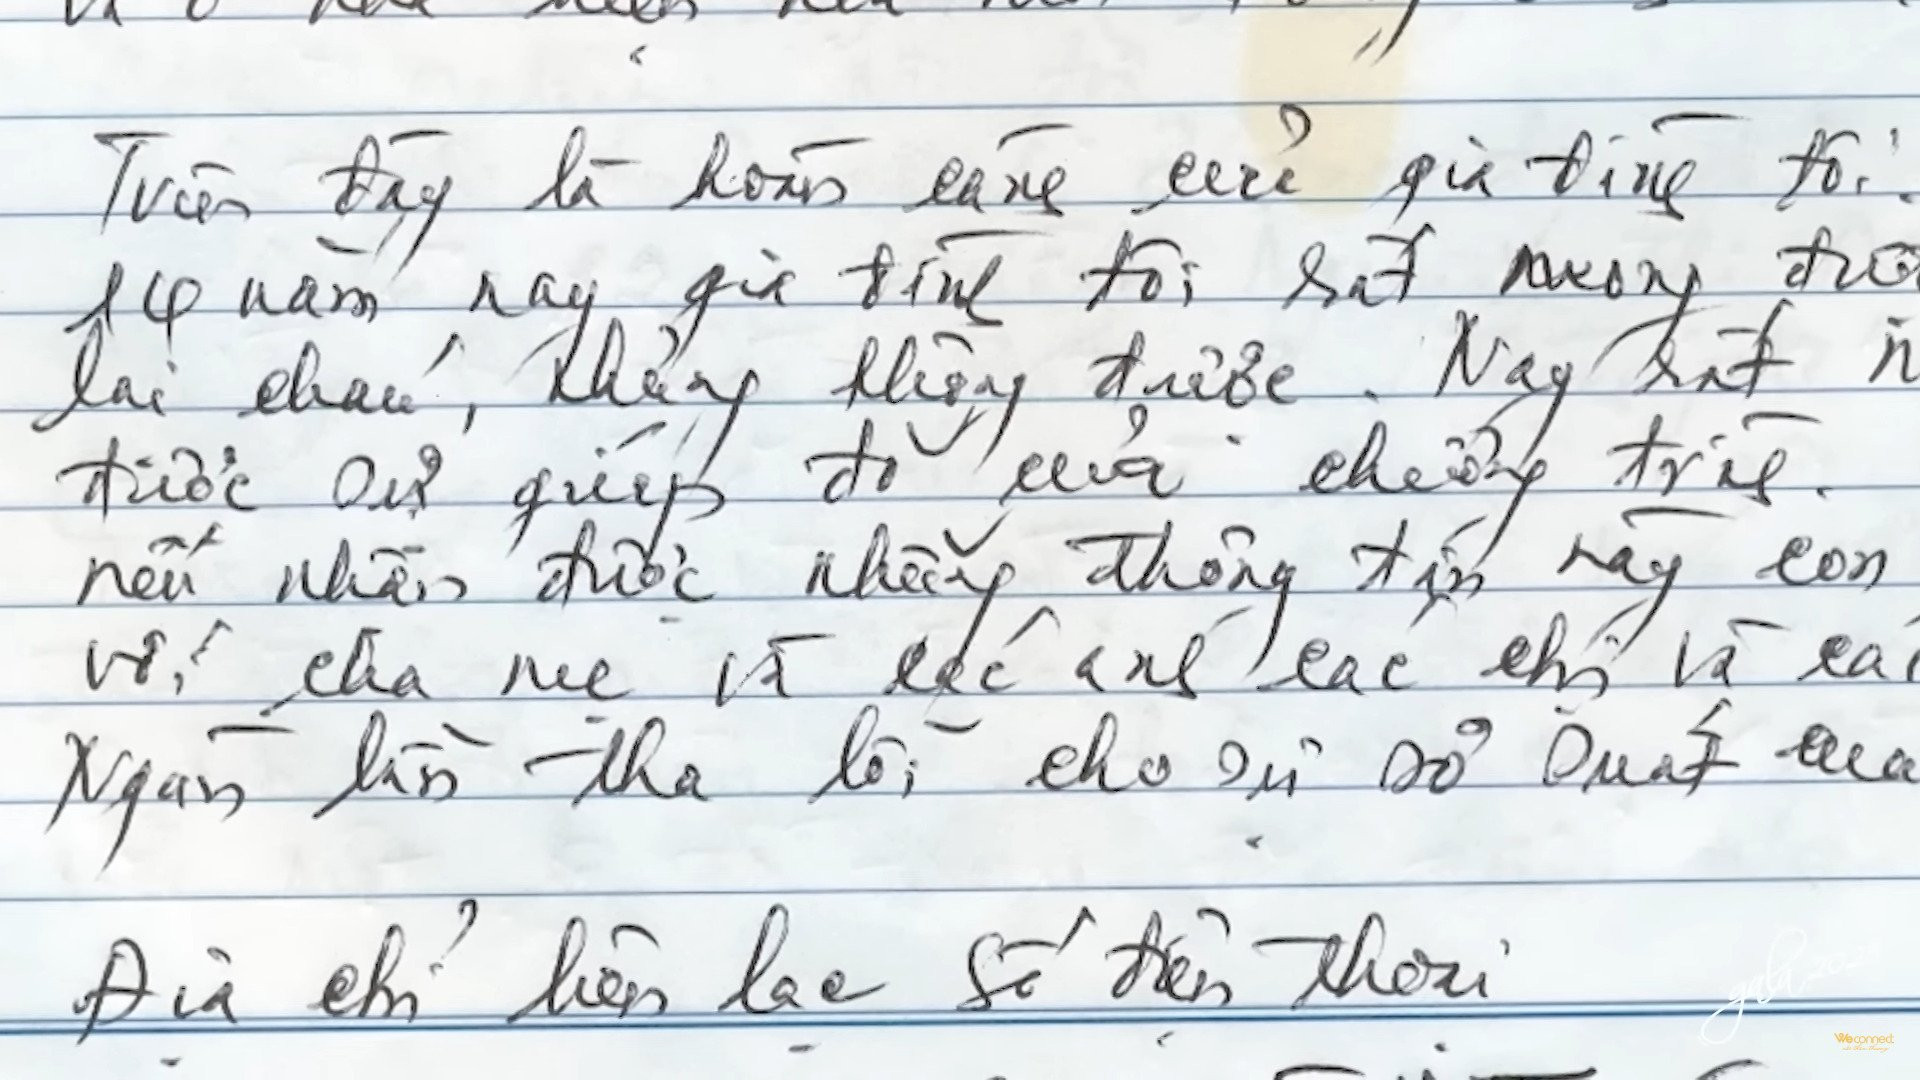 Trên đây là hoàn cảng của gia đìng tôi.
14 năm nay gia đìng tôi rất muong
lai chaú, nhưng không được. Nay rất
được sự giúp đỡ của chương trìng.
nếu nhận được những thông tin này con
với cha mẹ và các anh các chị và
Ngàn lần tha lỗi cho sự sơ suất
Địa chỉ liên lạc Số điện thoai
gala
We connect